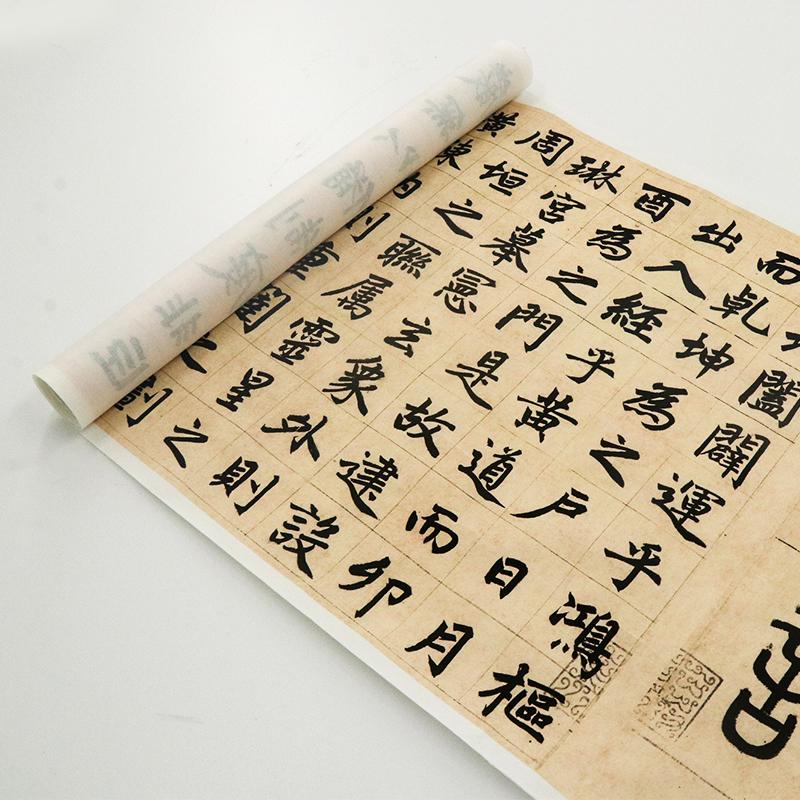 闔闢運乎鴻樞
而乾坤為之戶日月
出入經乎黃道而卯
酉為之門是故建設
琳宮摹憲玄象外則
周垣之聯屬靈星之
橫陳內則重